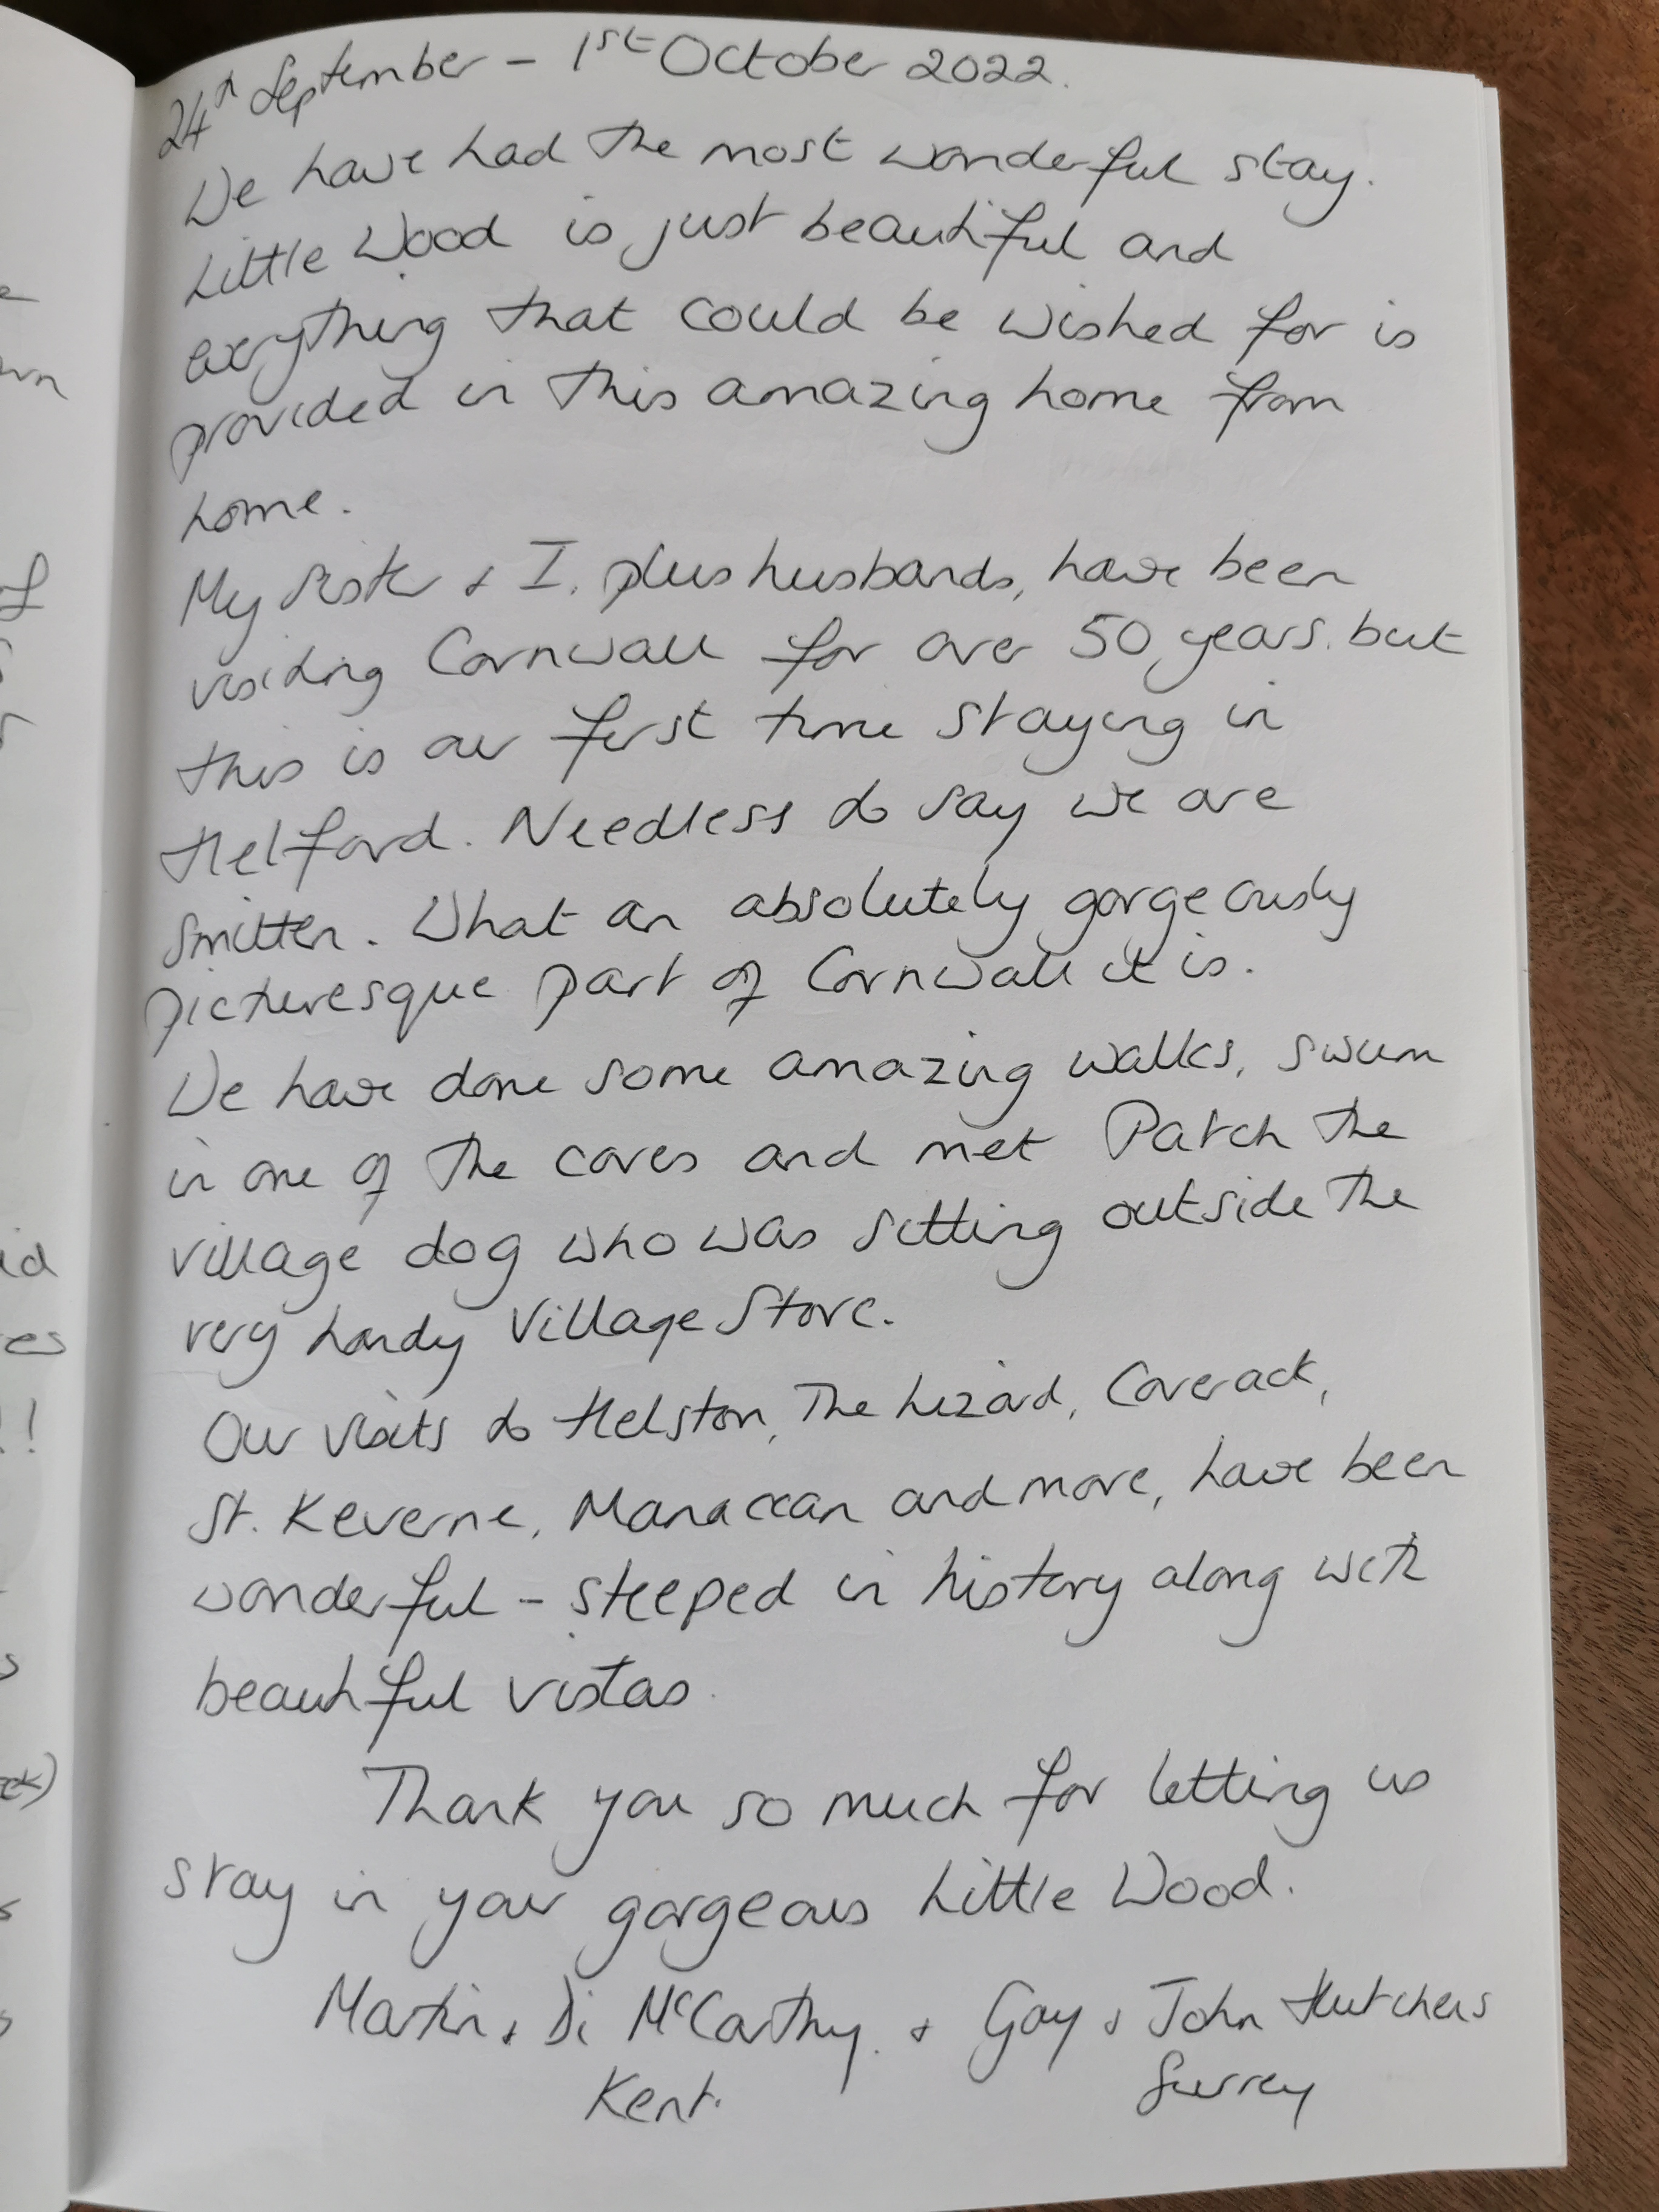 24th September - 1st October 2022.
We have had the most wonderful stay.
Little Wood is just beautiful and
everything that could be wished for is
provided in this amazing home from
home.
My sister + I, plus husbands, have been
visiting Cornwall for over 50 years. but
this is our first time staying in
Helford. Needless to say we are
smitten. What an absolutely gorgeously
picturesque part of Cornwall it is.
We have done some amazing walks, swum
in one of the coves and met Patch the
village dog who was sitting outside the
very handy Village Store.
Our visits to Helston, The Lizard, Coverack,
St. Keverne, Manaccan and more, have been
wonderful - steeped in history along with
beautiful vistas.
Thank you so much for letting us
stay in your gorgeous Little Wood.
Martin + Di McCarthy. + Gay + John Hutchens
Kent. Surrey